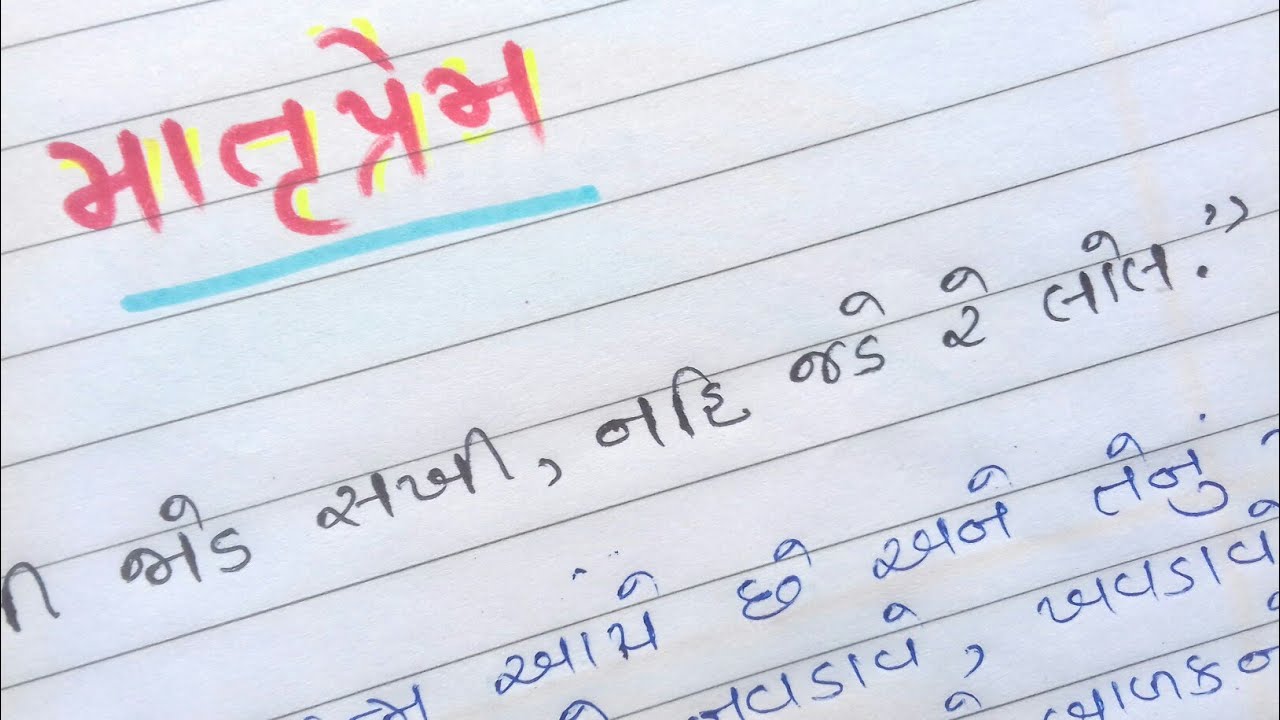 માતૃપ્રેમ
જોડ સખી, નહિ જડે રે લોલ."
આપે છે અને તેનું
નવડાવે, ખવડાવે
બાળકન